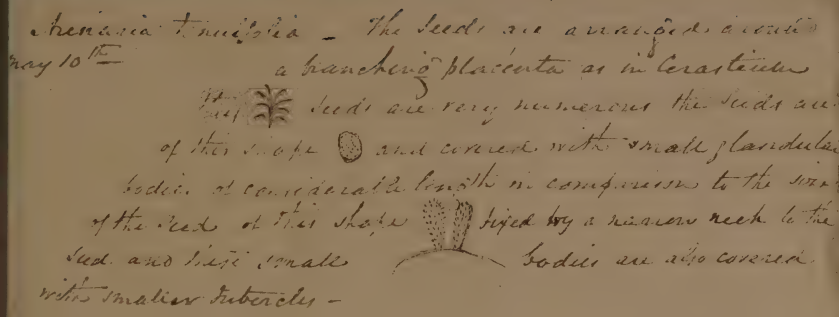 Arenaria tenuifolia - The seeds are arranged around
May 10th a branching placenta as in Cerastium
seeds are very numerous the seeds are
of this shape and covered with small glandular
bodies of considerable length in comparison to the size
of the seed of this shape fixed by a narrow neck to the
seed and these small bodies are also covered
with smaller tubercles -